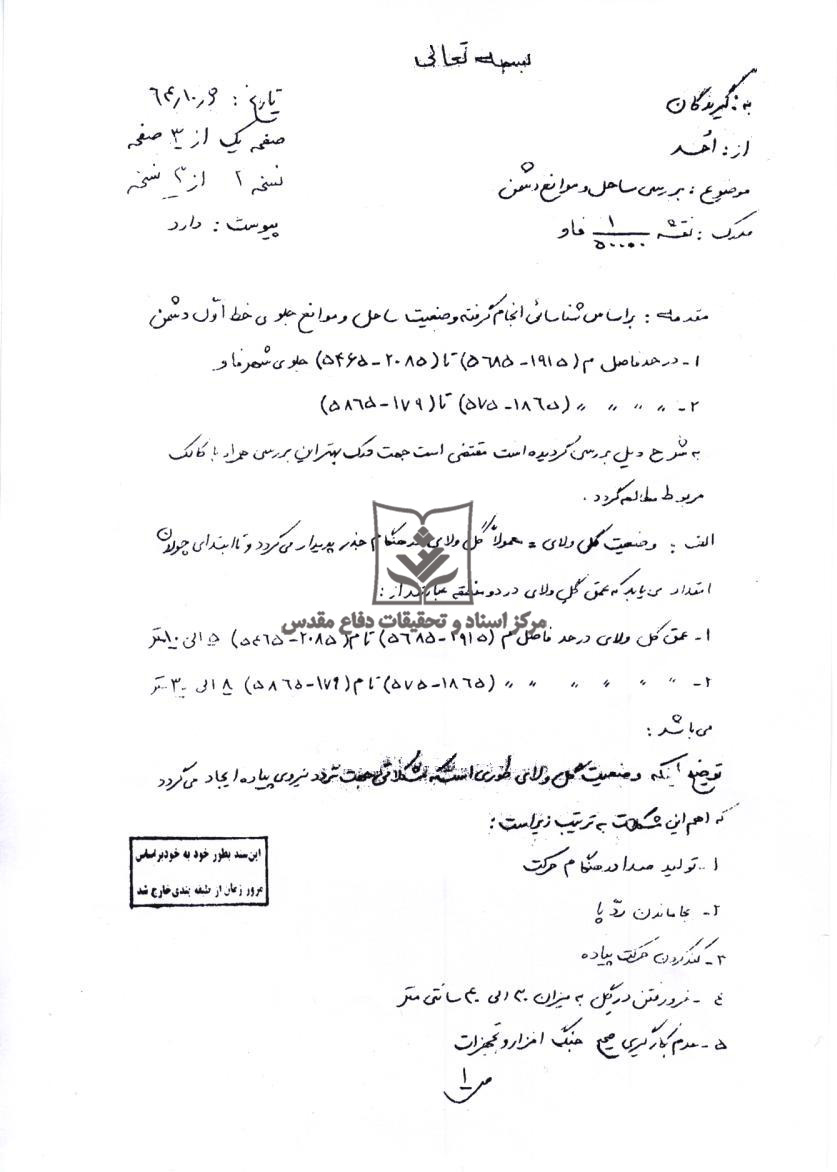 بسمه تعالی
به: گیرندگان
تاریخ: ۶۴٫۱۰٫
از: احمد
صفحه یک از ۳ صفحه
موضوع: بررسی ساحل و موانع دشمن
نسخه ۲ از ۳ نسخه
مدرک: نقشه ۱/۵۰۰۰۰ فاو
پیوست: دارد
مقدمه: براساس شناسائی انجام گرفته وضعیت ساحل و موانع جلوی خط اوّل دشمن
۱- در حد فاصل م (۱۹۱۵-۵۶۸۵) تا (۲۰۸۵-۵۴۶۵) جلوی شهر فاو
۲- " " " " (۱۸۶۵-۵۷۵) تا (۱۷۹-۵۸۶۵)
به شرح ذیل بررسی گردیده است مقتضی است جهت درک بهتر این بررسی همراه با کالک
مربوط مطالعه گردد.
الف: وضعیت گل ولای = معمولاً گل ولای در هنگام جذر پدیدار می گردد و تا ابتدای چولان
امتداد می یابد که عمق گل ولای در دو منطقه عبارتند از:
مرکز اسناد و تحقیقات دفاع مقدس
۱- عمق گل ولای در حد فاصل م (۱۹۱۵-۵۶۸۵) تا م (۲۰۸۵-۵۴۶۵) ۵ الی ۱۰ متر
۲- " " " " " " (۱۸۶۵-۵۷۵) تا م (۱۷۹-۵۸۶۵) ۸ الی ۳۰ متر
می باشد:
توضیح اینکه وضعیت گل ولای طوری است که مشکلاتی جهت تردد نیروی پیاده ایجاد می گردد
که اهم این مشکلات به ترتیب زیر است:
این سند بطور خود به خود براساس
مرور زمان از طبقه بندی خارج شد
۱- تولید صدا در هنگام حرکت
۲- بجا ماندن ردّ پا
۳- کند کردن حرکت پیاده
۴- فرو رفتن در گل به میزان ۳۰ الی ۴۰ سانتی متر
۵- عدم بکارگیری صحیح جنگ افزار و تجهیزات
ص ۱